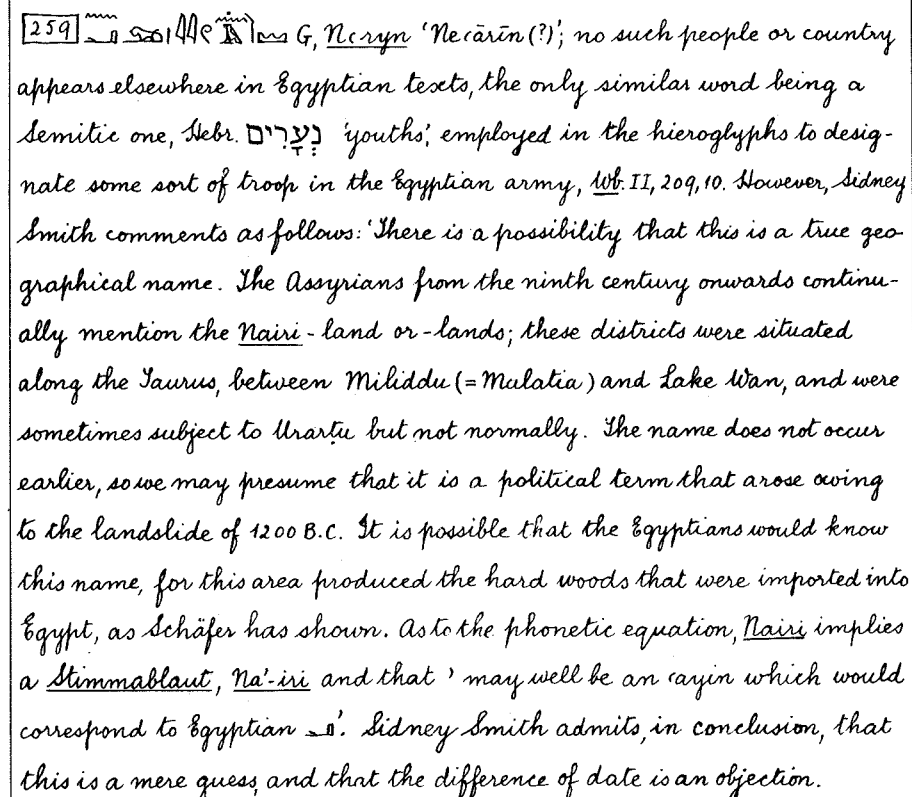 259 G, Nꜥryn ‘Neꜥārīn (?)’; no such people or country
appears elsewhere in Egyptian texts, the only similar word being a
Semitic one, Hebr. נְעָרִים ‘youths’, employed in the hieroglyphs to desig-
nate some sort of troop in the Egyptian army, Wb. II, 209, 10. However, Sidney
Smith comments as follows: ‘There is a possibility that this is a true geo-
graphical name. The Assyrians from the ninth century onwards continu-
ally mention the Nairi-land or -lands; these districts were situated
along the Taurus, between Miliddu (= Malatia) and Lake Wan, and were
sometimes subject to Urarṭu but not normally. The name does not occur
earlier, so we may presume that it is a political term that arose owing
to the landslide of 1200 B.C. It is possible that the Egyptians would know
this name, for this area produced the hard woods that were imported into
Egypt, as Schäfer has shown. As to the phonetic equation, Nairi implies
a Stimmablaut, Na’-iri and that ’ may well be an ꜥayin which would
correspond to Egyptian 𓂝’. Sidney Smith admits, in conclusion, that
this is a mere guess, and that the difference of date is an objection.